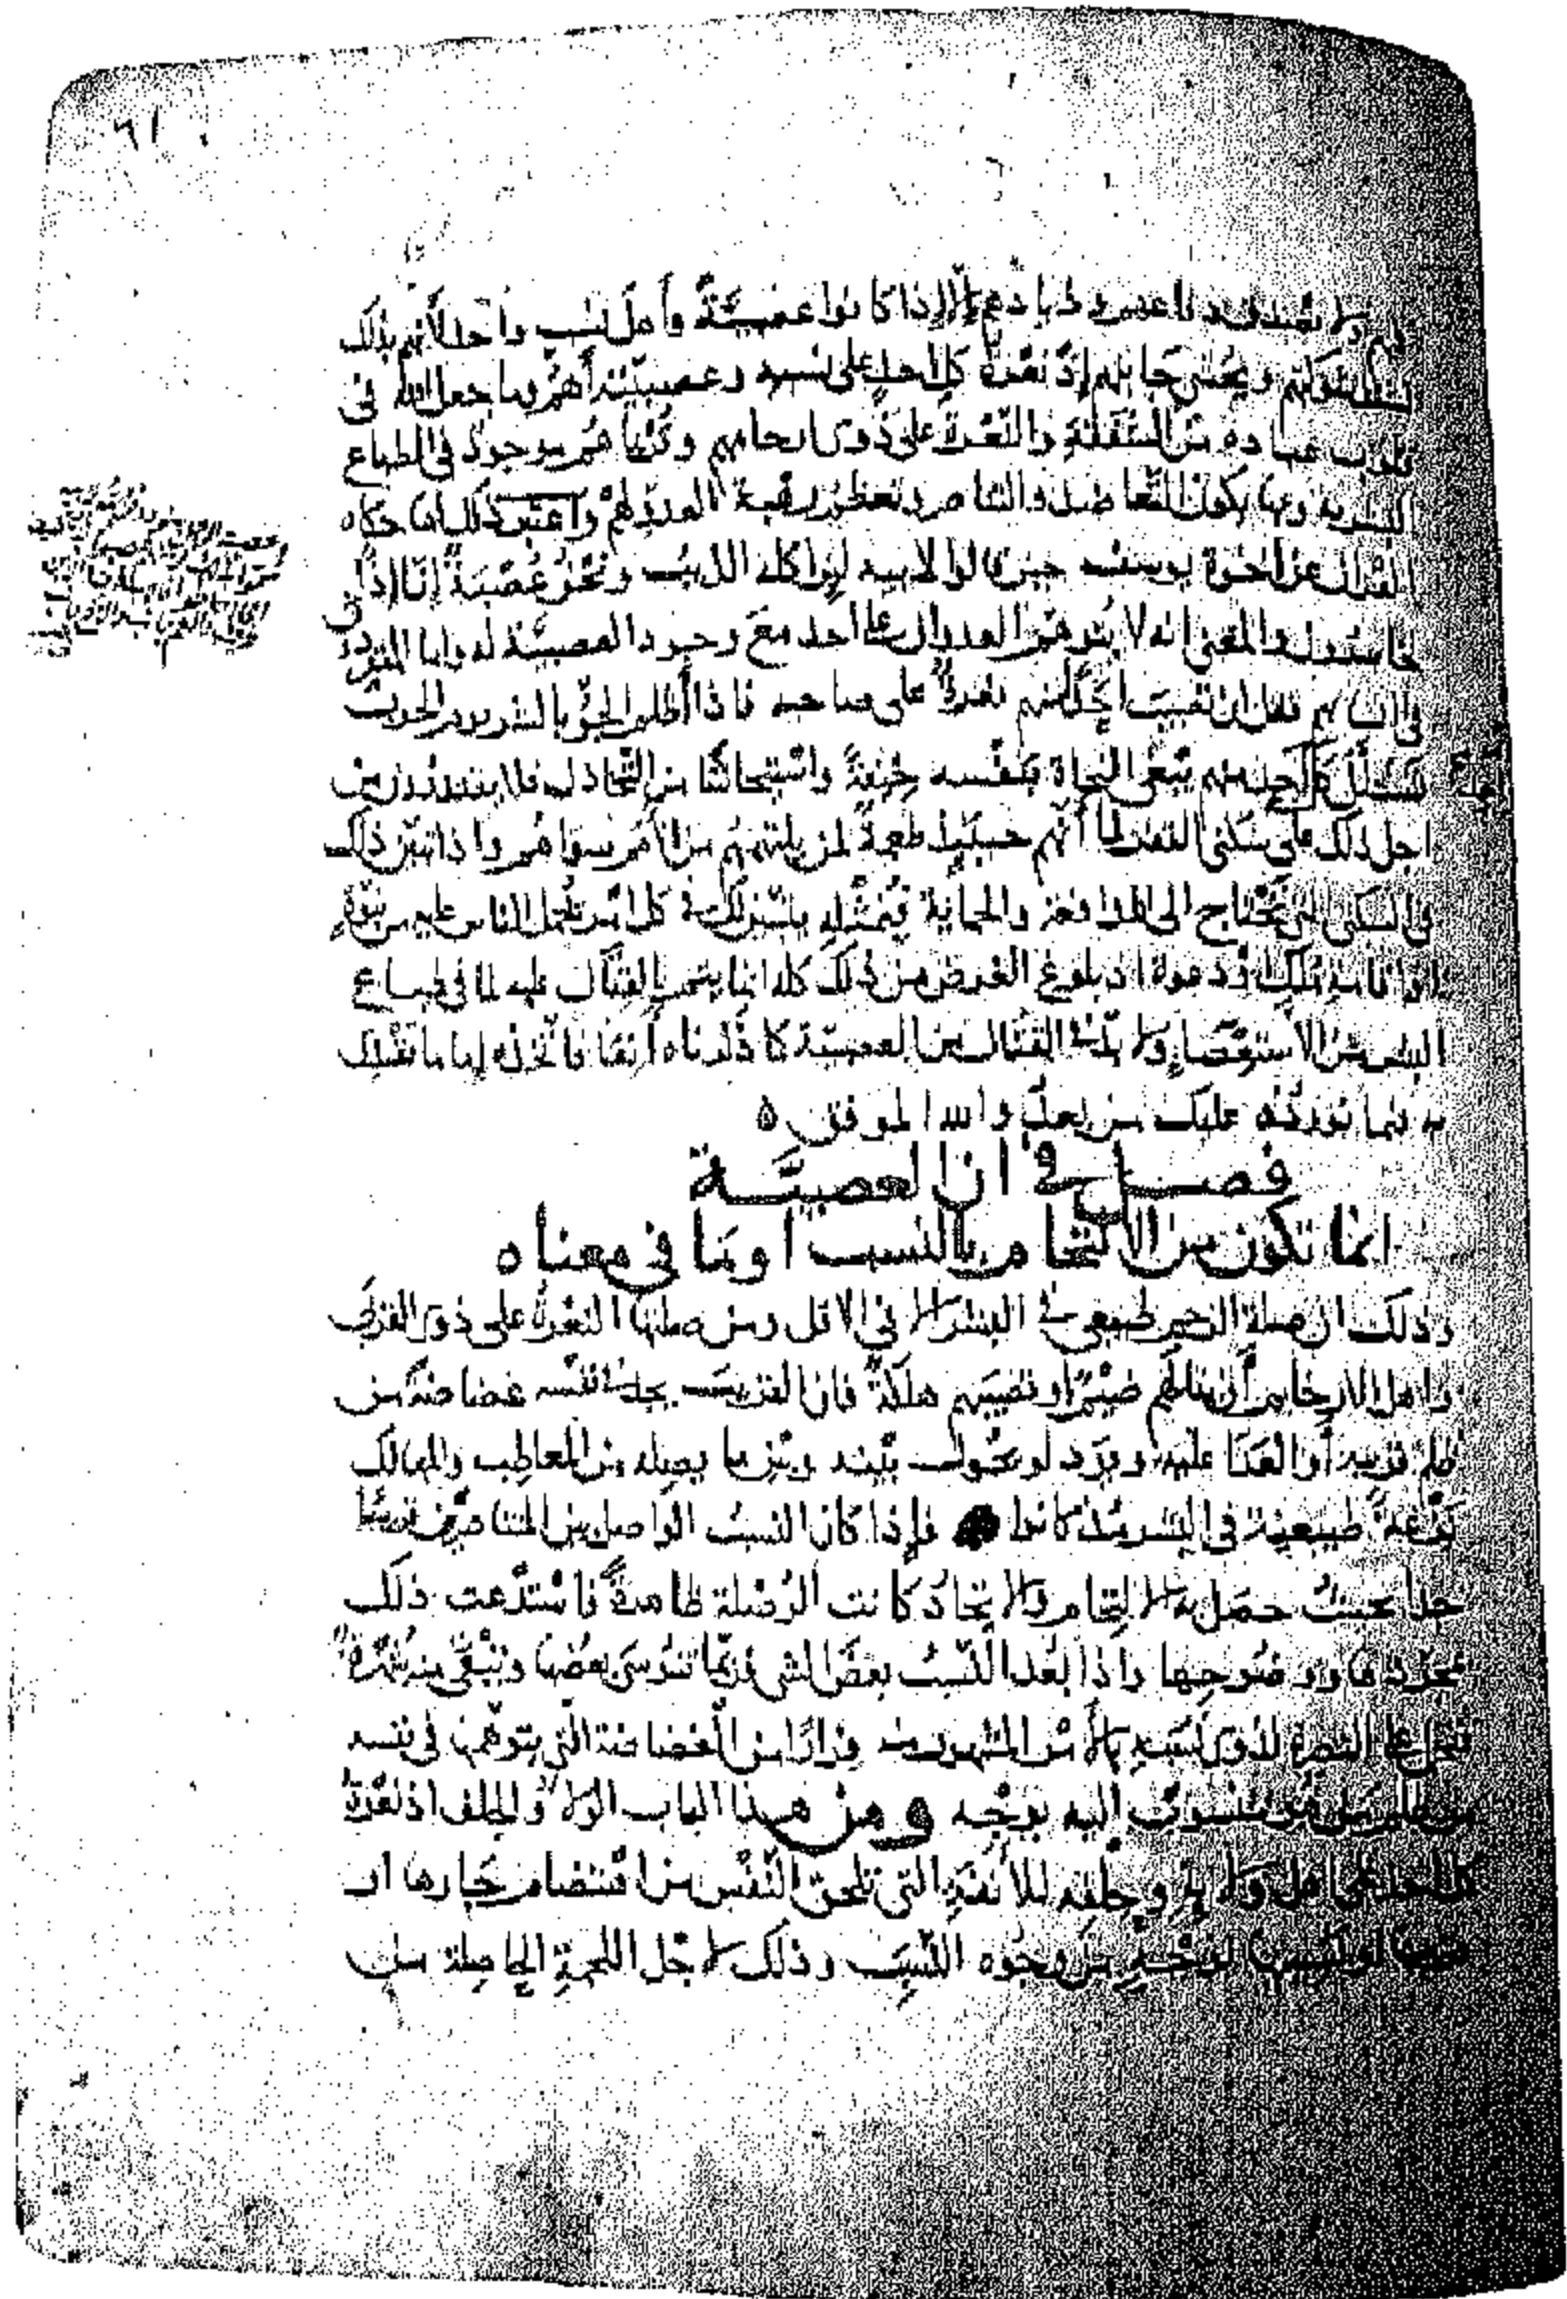 ٦١
فيهم ولا يصدق دفاعهم وذيادهم إلّا إذا كانوا عصبيّةً وأهل نسب واحد لأنهم بذلك
تشتد شوكتهم ويُخشى جانبهم إذ نعرة كلّ أحدٍ على نسبه وعصبيّته أهمّ وما جعل الله في
قلوب عباده من الشّفقة والنّعرة على ذوي ارحامهم وقُرباهُم موجودٌ في الطباع
البشرية وبها يكون التّعاضد والتناصر وتعظم رهبة العدوّ لهُمْ واعتبر ذلك فيما حكاه
القرآن عن اخوة يوسف حين قالوا لابيه لين اكله الذيب ونحن عُصْبَةٌ إنّا إذًا
لخاسرون والمعنى انه لا يُتوهّم العدوان على احد مع وجود العصبيّة له واما المتفرّدون
في انسابهم فقلّ ان تصيب احدًا منهم نعرةٌ على صاحبه فاذا أظلم الجوّ بالشر يوم الحرب
تسلّل كل أحد منهم يبغي النجاة بنفسه خيفةً واستيحاشًا من التّخاذل فلا يقتدرون من
اجل ذلك على سكنى القفر لما أنّهم حينيذ طعمةٌ لمن يلتهمهم من الأمم سواهم واذا تبيّن ذلك
في السكنى التي تحتاج الى المدافعة والحماية فبمثله يتبيّن لك في كل امر يُحمل الناس عليه من نبوّةٍ
او اقامة مُلكٍ او دعوة اذ بلوغ الغرض من ذلك كله انما يتم بالقتال عليه لما في طباع
البشر من الاستعصاء ولا بدّ في القتال من العصبيّة كما ذكرناه آنفا فاتّخذه إماما تقتدي
به فيما نورده عليك من بعدُ والله الموفق ٥
فصل في ان العصبيّة
انما تكون من الالتحام بالنسب او ما في معناه
وذلك ان صلة الرّحم طبيعي في البشر الا في الاقل ومن صلتها النعرة على ذوي القربى
واهل الارحام أن ينالهم ضيْم او تصيبهم هلكةٌ فان القريب يجد في نفسه غضاضة من
ظلم قريبه أو العدا عليه ويودّ لو يحُول بيْنه وبيْن ما يصله من المعاطب والمهالك
نزْعةٌ طبيعية في البشر مُذ كانوا فإذا كان النسبُ الواصل بين المتناصرين قريبًا
جدا بحيث حصل به الالتحام والاتحاد كانت الوُصْلة ظاهرةً فاستدعت ذلك
بمجرّدها ووضوحها واذا بعُد النّسبُ بعضَ الشيء فربّما تنوسي بعضها وتبْقى منه شُهرةٌ
فتحمل على النصرة لذوي نَسَبه بالأمر المشهور منه فرارًا من الغضاضة التي يتوهّمها في نفسه
من ظلم من هو منسوب إليه بوجْه ومن هذا الباب الولاء والحلف اذ نعرة
كل احد على اهل ولايه وحِلفه للأنفة التي تلحق النّفس من اهتضام جارها او
قريبها او نسيبها بوجْهٍ من وجوه النّسب وذلك لاجل اللحمة الحاصلة من